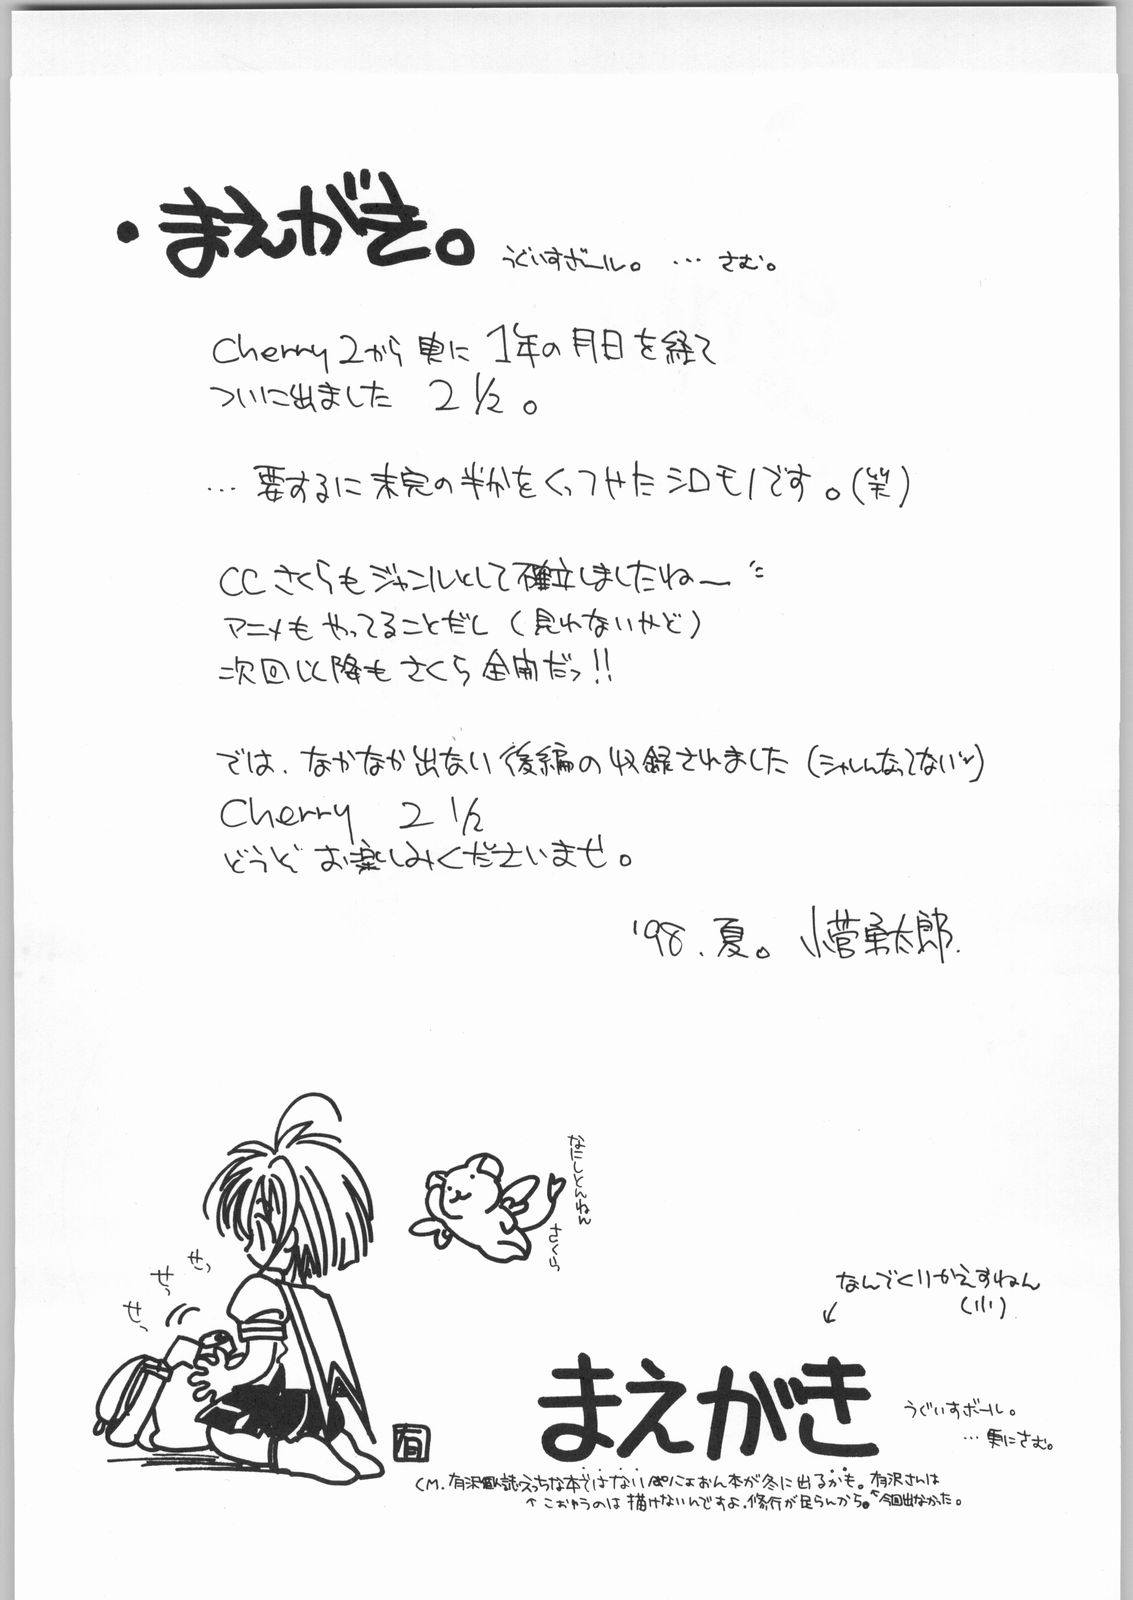 ・まえがき。
うぐいすボール。 … さむ。
Cherry 2から更に 1年の月日を経て
ついに出ました 2 1/2。
… 要するに未完の半分をくっつけたシロモノです。(笑)
CCさくらもジャンルとして確立しましたねー
アニメもやってることだし (見れないけど)
次回以降も さくら 全開だっ!!
では、なかなか出ない後編の収録されました (シャレんなってない)
Cherry 2 1/2
どうぞ お楽しみくださいませ。
'98.夏。 小菅勇太郎.
なにしとんねん
さくら
せっ
せっ
せっ
なんでくりかえすねん
(川)
まえがき
うぐいすボール。
…更にさむ。
有
CM. 有沢個人誌えっちな本ではないぱにょおん本が冬に出るかも。有沢さんは
↑こおゆうのは描けないんですよ、修行が足らんから。↑今回出なかった。